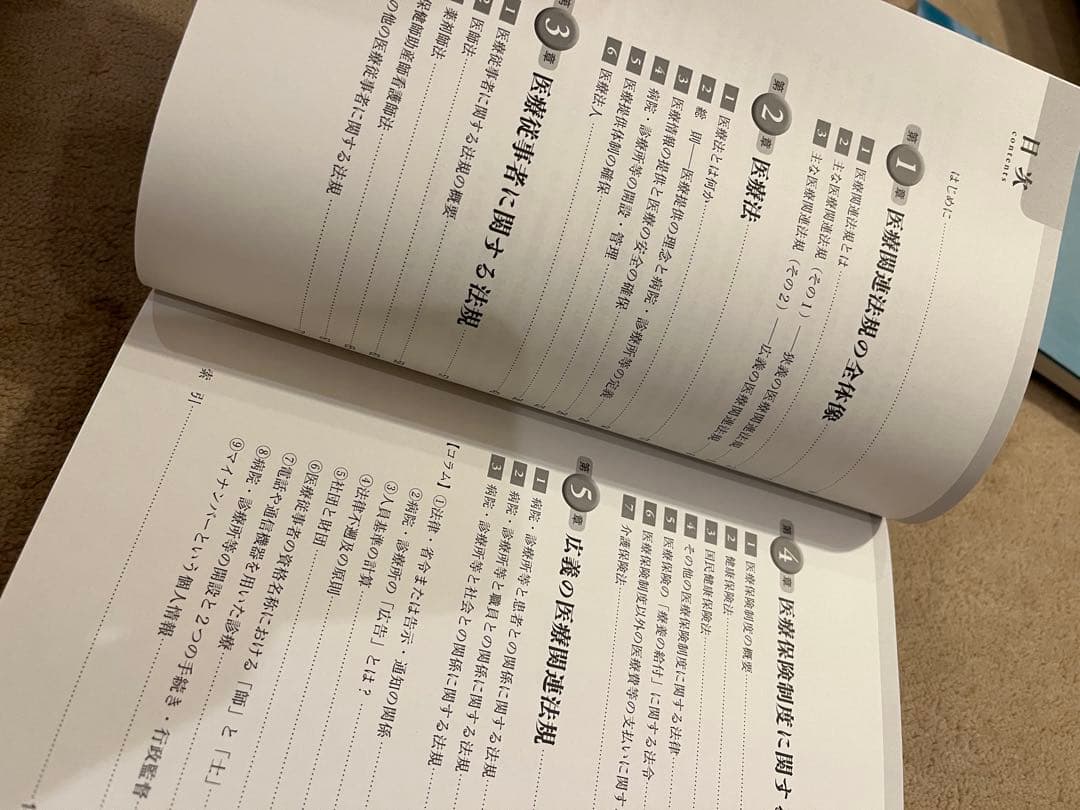 目次
contents
はじめに
第1章 医療関連法規の全体像
1 医療関連法規とは
2 主な医療関連法規（その1）――狭義の医療関連法規
3 主な医療関連法規（その2）――広義の医療関連法規
第2章 医療法
1 医療法とは何か
2 総則――医療提供の理念と病院・診療所等の定義
3 医療情報の提供と医療の安全の確保
4 病院・診療所等の開設・管理
5 医療提供体制の確保
6 医療法人
第3章 医療従事者に関する法規
1 医療従事者に関する法規の概要
2 医師法
薬剤師法
保健師助産師看護師法
の他の医療従事者に関する法規
第4章 医療保険制度に関す
1 医療保険制度の概要
2 健康保険法
3 国民健康保険法
4 その他の医療保険制度に関する法律
5 医療保険の「療養の給付」に関する法令
6 医療保険制度以外の医療費等の支払いに関す
7 介護保険法
第5章 広義の医療関連法規
1 病院・診療所等と患者との関係に関する法規
2 病院・診療所等と職員との関係に関する法規
3 病院・診療所等と社会との関係に関する法規
【コラム】①法律・省令または告示・通知の関係
②病院・診療所の「広告」とは？
③人員基準の計算
④法律不遡及の原則
⑤社団と財団
⑥医療従事者の資格名称における「師」と「士」
⑦電話や通信機器を用いた診療
⑧病院・診療所等の開設と2つの手続き・行政監督
⑨マイナンバーという個人情報
索引